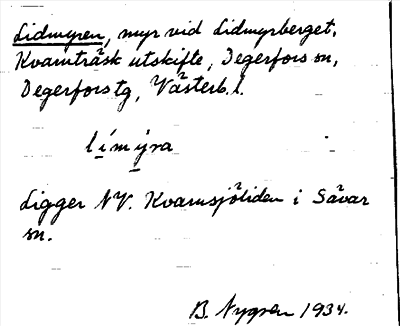 Lidmyren, myr vid Lidmyrberget,
Kvarnträsk utskifte, Degerfors sn,
Degerfors tg, Västerb. l.
límýra
Ligger NV. Kvarnsjöliden i Sävar
sn.
B. Nygren 1934.